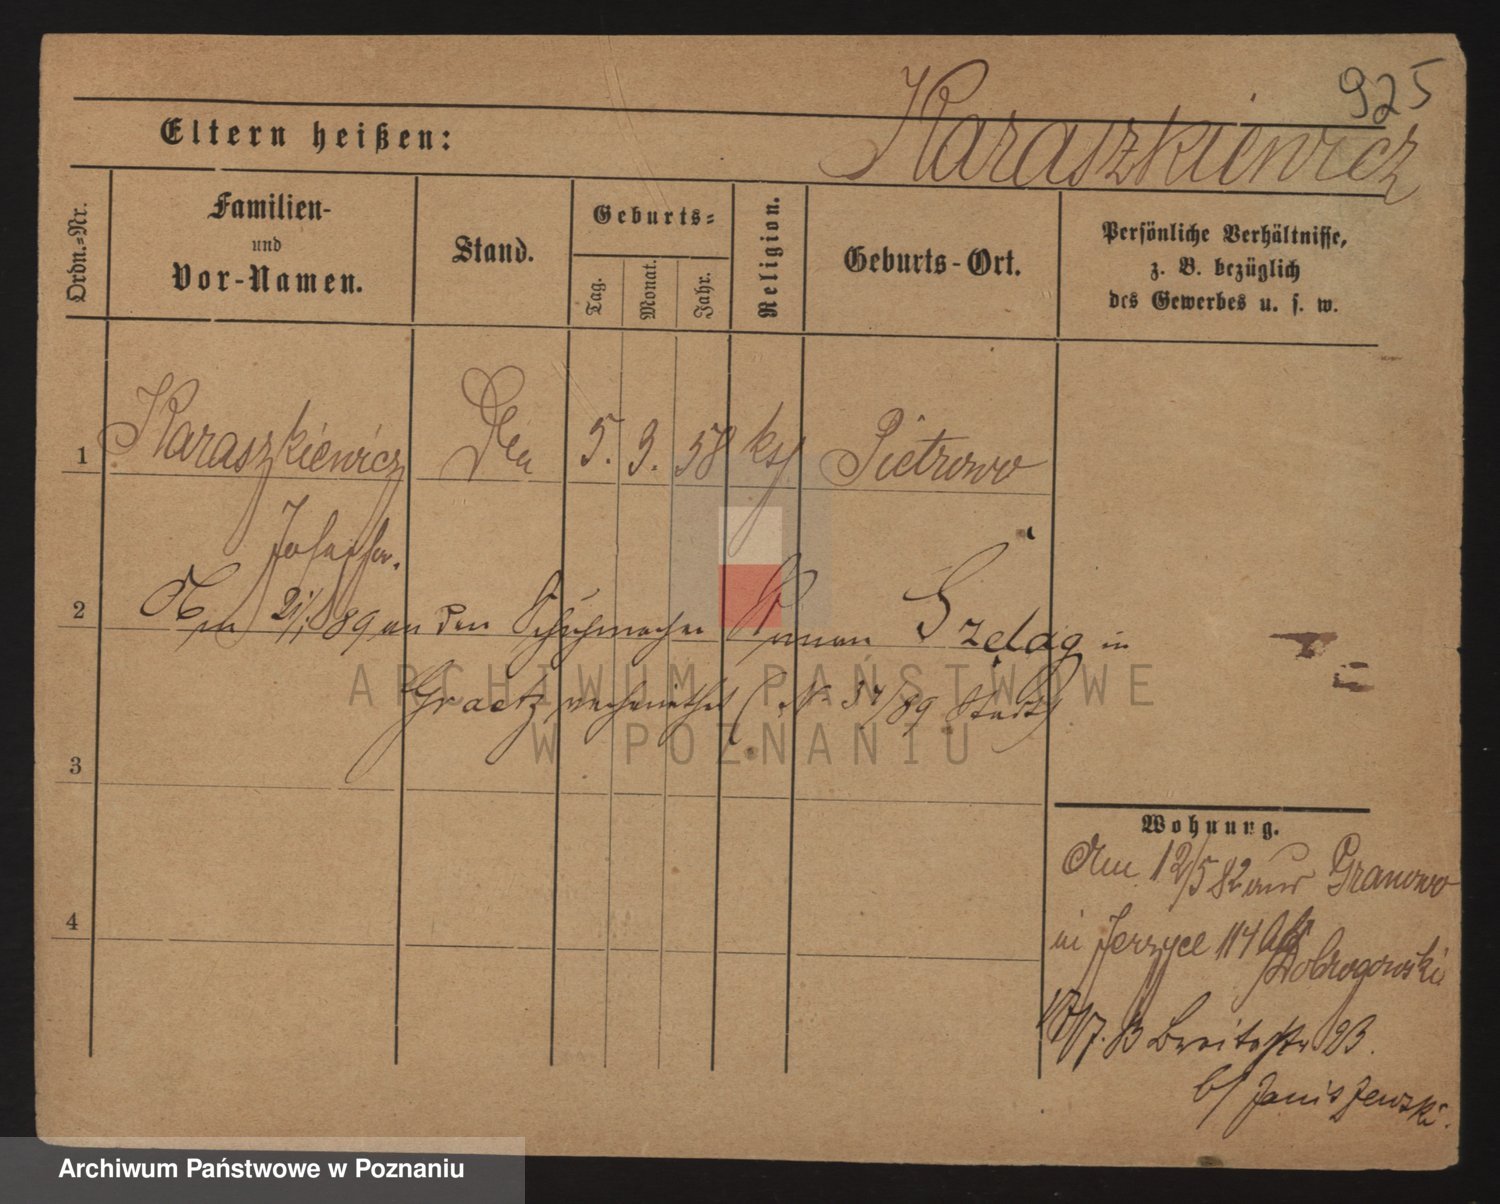 925
Karaszkiewicz
Eltern heißen:
Ordn.=Nr.
Familien-
und
Vor-Namen.
Stand.
Geburts=
Tag.
Monat.
Jahr.
Religion.
Geburts-Ort.
Persönliche Verhältnisse,
z. B. bezüglich
des Gewerbes u. s. w.
1 Karaszkiewicz 5. 3. 58 Pietrowo
Josepha.
2 Am 21/1 89 an den Schuhmacher Roman Szeląg in
Graetz verheirathet (N. 37/89 Stadt)
3
4
Wohnung.
Am 12/5 82 aus Granowo
in Jerzyce 114 Dobrogowski
Breitestr 23.
b/ Janiszewski.
ARCHIWUM PAŃSTWOWE
W POZNANIU
Archiwum Państwowe w Poznaniu